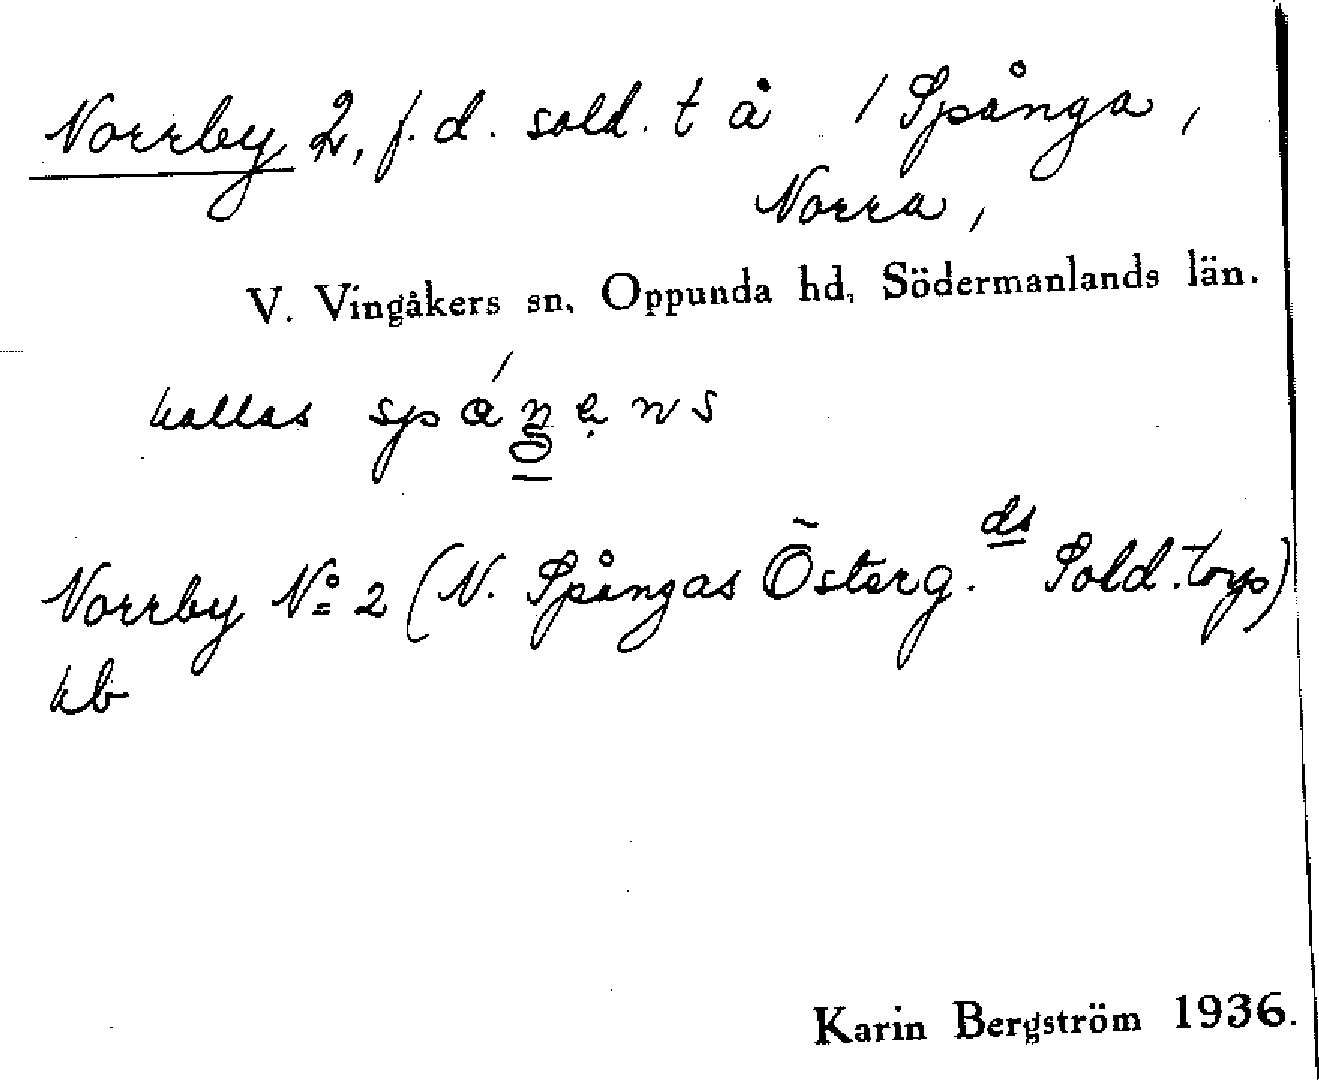 Norrby 2, f.d. sold. t å / Spånga,
Norra,
V. Vingåkers sn, Oppunda hd, Södermanlands län.
kallas
Norrby No 2 (N. Spångas Österg. ds Sold.torp)
kb
Karin Bergström 1936.